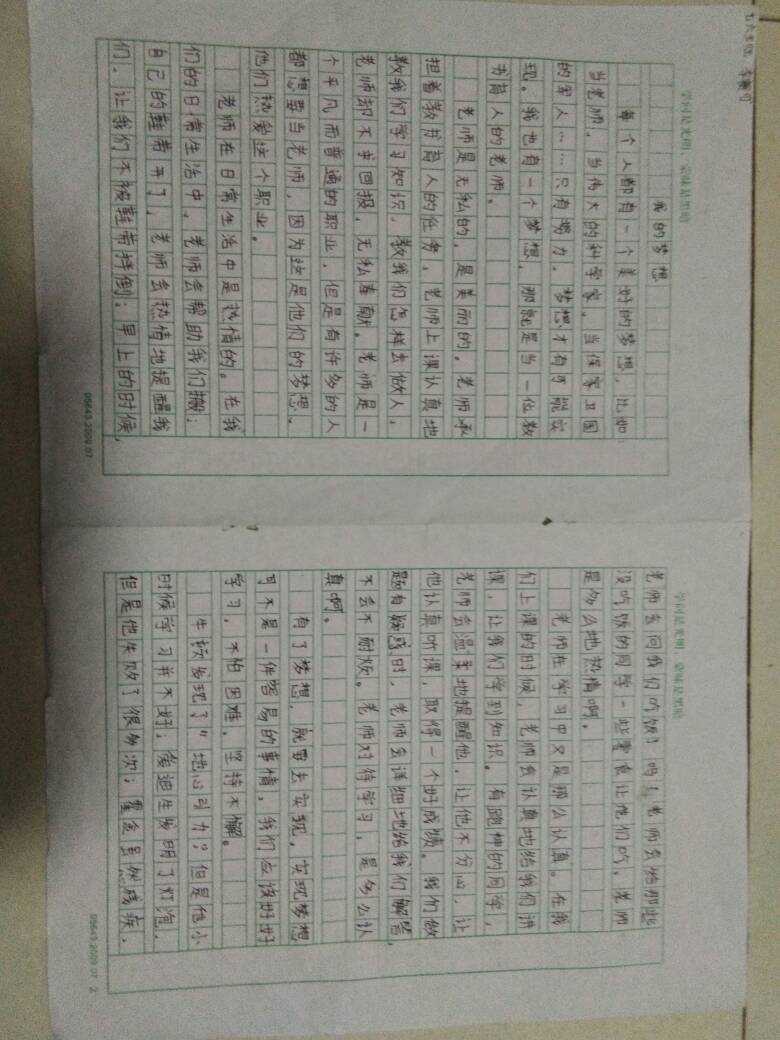 学问是光明，蒙昧是黑暗
我的梦想
每个人都有一个美好的梦想，比如：
当老师，当伟大的科学家，当保家卫国
的军人……只有努力，梦想才有可能实
现。我也有一个梦想，那就是当一位教
书育人的老师。
老师是无私的，是美丽的。老师承
担着教书育人的任务，老师上课认真地
教我们学习知识，教我们怎样去做人，
老师却不求回报，无私奉献。老师是一
个平凡而普通的职业，但是有许多的人
都想要当老师，因为这是他们的梦想。
他们热爱这个职业。
老师在日常生活中是热情的。在我
们的日常生活中，老师会帮助我们搬；
自己的鞋带开了，老师会热情地提醒我
们，让我们不被鞋带拌倒；早上的时候，
05643.2009.07
学问是光明，蒙昧是黑暗
老师会问我们吃饭了吗？老师会给那些
没吃饭的同学一些零食让他们吃，老师
是多么地热情啊。
老师在学习中又是那么认真。在我
们上课的时候，老师会认真地给我们讲
课，让我们学到知识。有跑神的同学，
老师会温柔地提醒他，让他不分心，让
他认真听课，取得一个好成绩。我们做
题有疑惑时，老师会详细地给我们解答，
不会不耐烦。老师对待学习，是多么认
真啊。
有了梦想，就要去实现，实现梦想
可不是一件容易的事情，我们应该好好
学习，不怕困难，坚持不懈。
牛顿发现了“地心引力”但是他小
时候学习并不好；爱迪生发明了灯泡，
但是他失败了很多次；霍金虽然残疾，
05643.2009.07 2